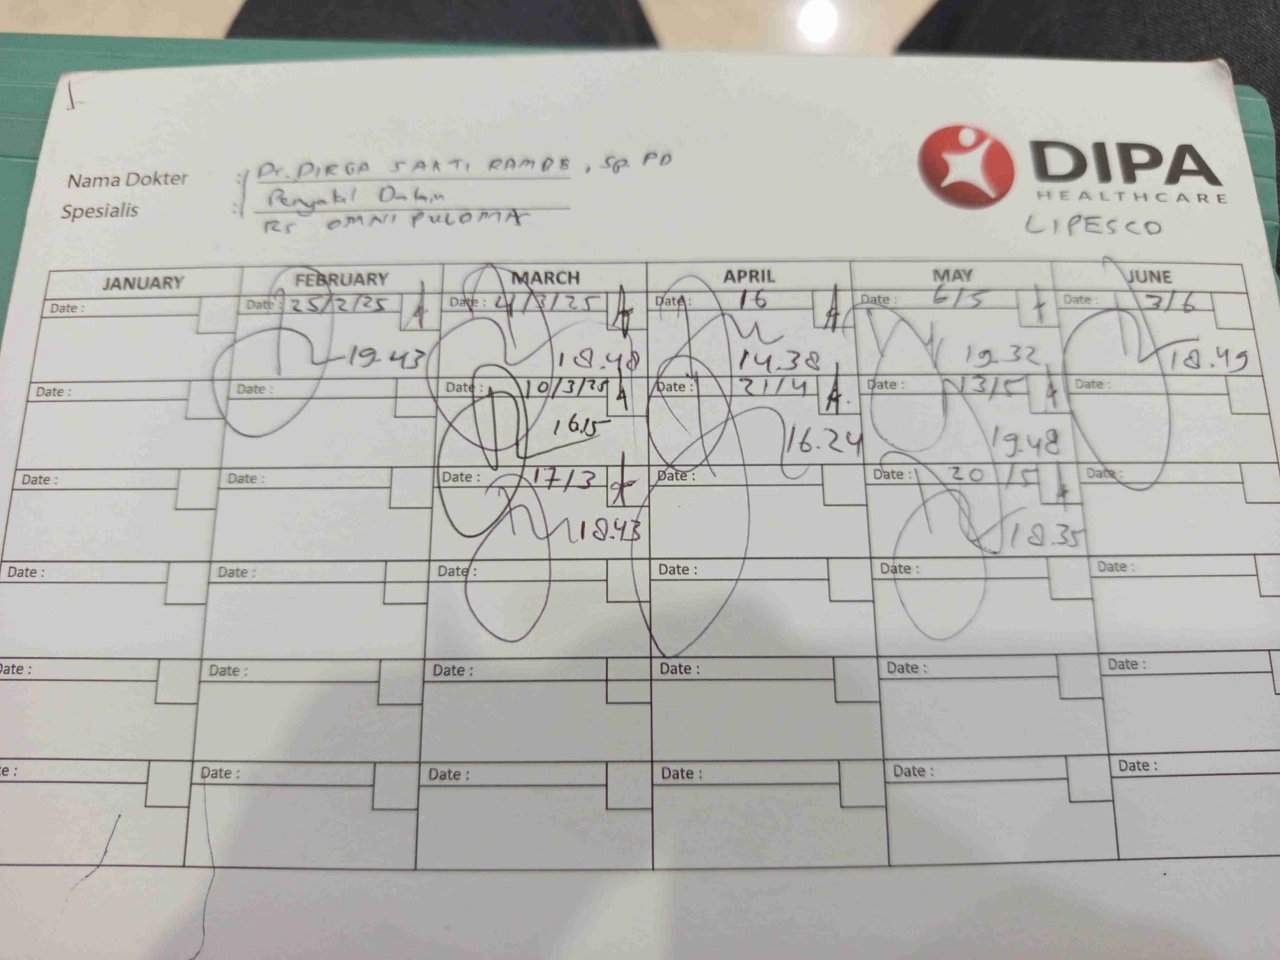 DIPA
HEALTHCARE
LIPESCO
Nama Dokter : Dr. DIRGA SAKTI RAMBE, Sp. PD
Spesialis : Penyakit Dalam
RS OMNI PULOMA
JANUARY FEBRUARY MARCH APRIL MAY JUNE
Date : Date : 25/2/25 A Date : 4/3/25 A Date : 16 A Date : 6/5 A Date : 3/6
19.43 18.48 14.38 19.32 18.49
Date : Date : Date : 10/3/25 A Date : 21/4 A. Date : 13/5 A Date :
16.15 16.24 19.48
Date : Date : Date : 17/3 Date : Date : 20/5 A Date :
18.43 18.35
Date : Date : Date : Date : Date : Date :
Date : Date : Date : Date : Date : Date :
Date : Date : Date : Date : Date :